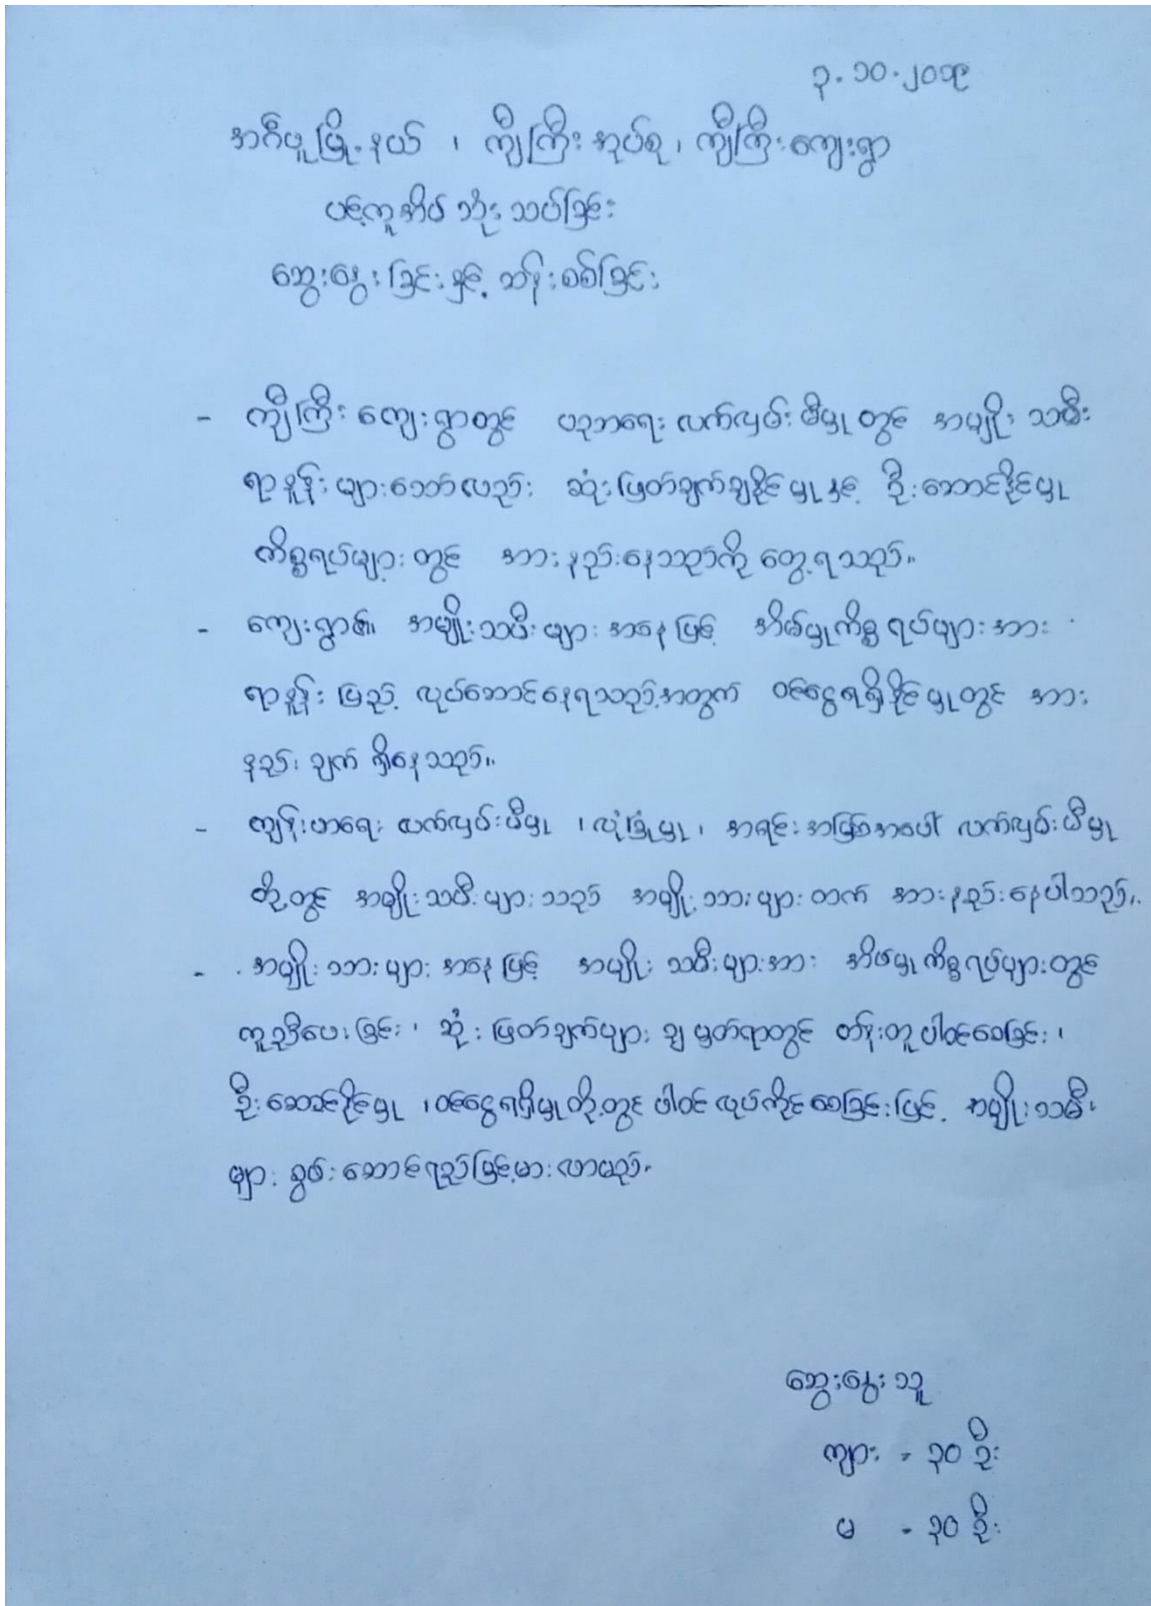 ၃.၁၀.၂၀၁၉
အင်္ဂပူမြို့နယ် ၊ ကျီကြီးအုပ်စု ၊ ကျီကြီးကျေးရွာ
ပင့်ကူအိမ် သုံးသပ်ခြင်း
ဆွေးနွေးခြင်းနှင့် ဆန်းစစ်ခြင်း
- ကျီကြီး ကျေးရွာတွင် ပညာရေး လက်လှမ်းမီမှုတွင် အမျိုးသမီး
ရာနှုန်း များသော်လည်း ဆုံးဖြတ်ချက်ချနိုင်မှုနှင့် ဦးဆောင်နိုင်မှု
ကိစ္စရပ်များတွင် အားနည်းနေသည်ကို တွေ့ရသည်။
- ကျေးရွာ၏ အမျိုးသမီးများအနေဖြင့် အိမ်မှုကိစ္စရပ်များအား
ရာနှုန်းပြည့် လုပ်ဆောင်နေရသည့်အတွက် ဝင်ငွေရရှိနိုင်မှုတွင် အား
နည်းချက် ရှိနေသည်။
- ကျန်းမာရေး လက်လှမ်းမီမှု ၊ လုံခြုံမှု ၊ အရင်းအမြစ်အပေါ် လက်လှမ်းမီမှု
တို့တွင် အမျိုးသမီးများသည် အမျိုးသားများထက် အားနည်းနေပါသည်။
- အမျိုးသားများအနေဖြင့် အမျိုးသမီးများအား အိမ်မှုကိစ္စရပ်များတွင်
ကူညီပေးခြင်း ၊ ဆုံးဖြတ်ချက်များ ချမှတ်ရာတွင် တန်းတူပါဝင်စေခြင်း ၊
ဦးဆောင်နိုင်မှု ၊ ဝင်ငွေရရှိမှုတို့တွင် ပါဝင်လုပ်ကိုင်စေခြင်းဖြင့် အမျိုးသမီး
များ စွမ်းဆောင်ရည်မြင့်မားလာမည်။
ဆွေးနွေးသူ
ကျား - ၃၀ ဦး
မ - ၃၀ ဦး